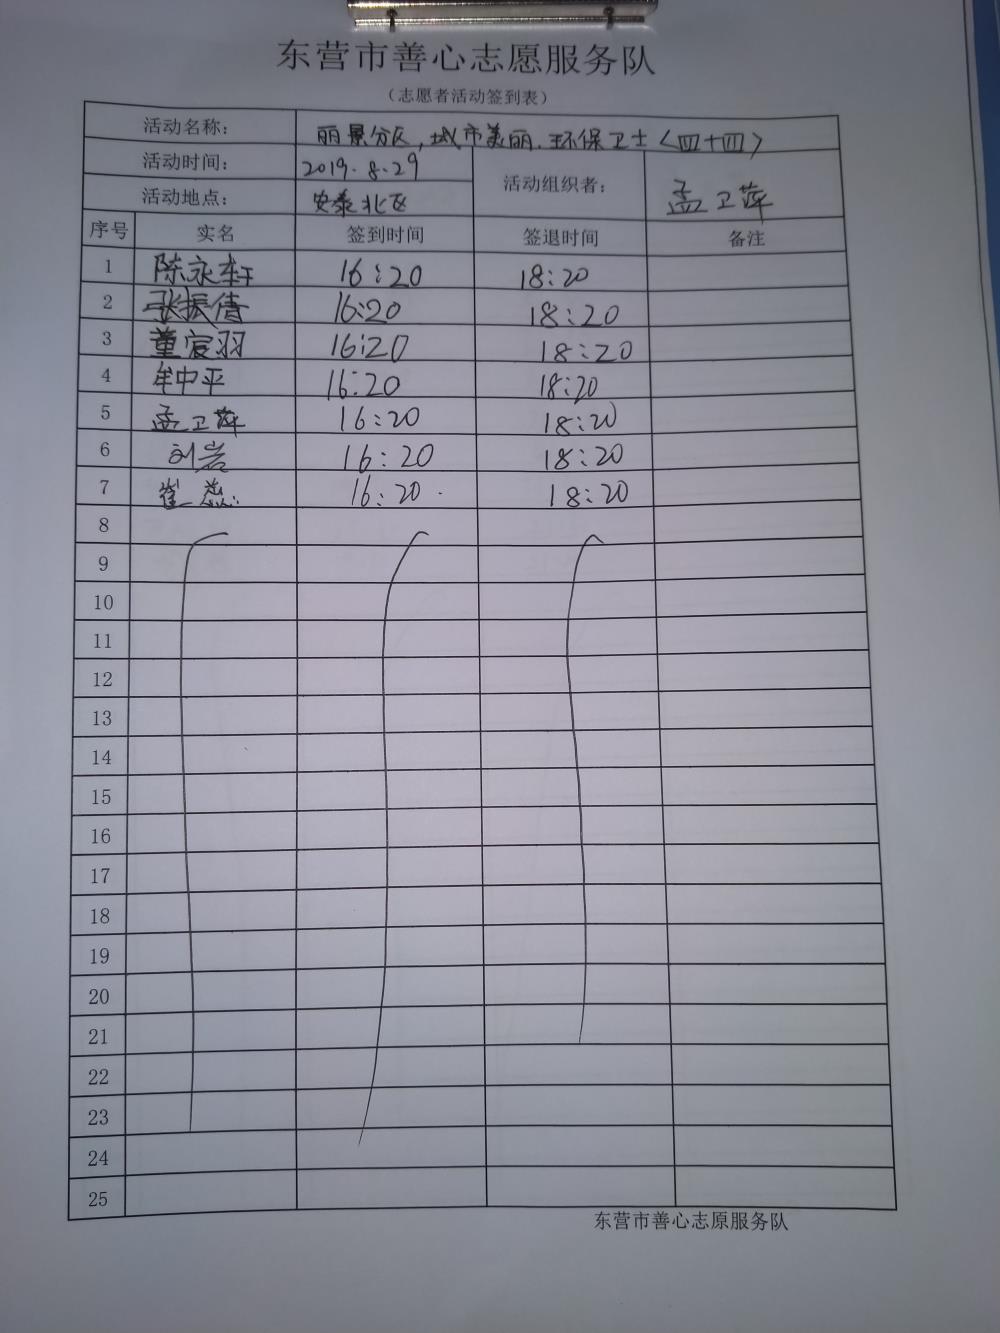 东营市善心志愿服务队
（志愿者活动签到表）
活动名称： 丽景分区，城市美丽.环保卫士〈四十四〉
活动时间： 2019.8.29 活动组织者： 孟卫萍
活动地点： 安泰北区
序号 实名 签到时间 签退时间 备注
1 陈永轩 16:20 18:20
2 张振倩 16:20 18:20
3 董宸羽 16:20 18:20
4 牟中平 16:20 18:20
5 孟卫萍 16:20 18:20
6 刘岩 16:20 18:20
7 崔蕊 16:20 18:20
8
9
10
11
12
13
14
15
16
17
18
19
20
21
22
23
24
25
东营市善心志原服务队